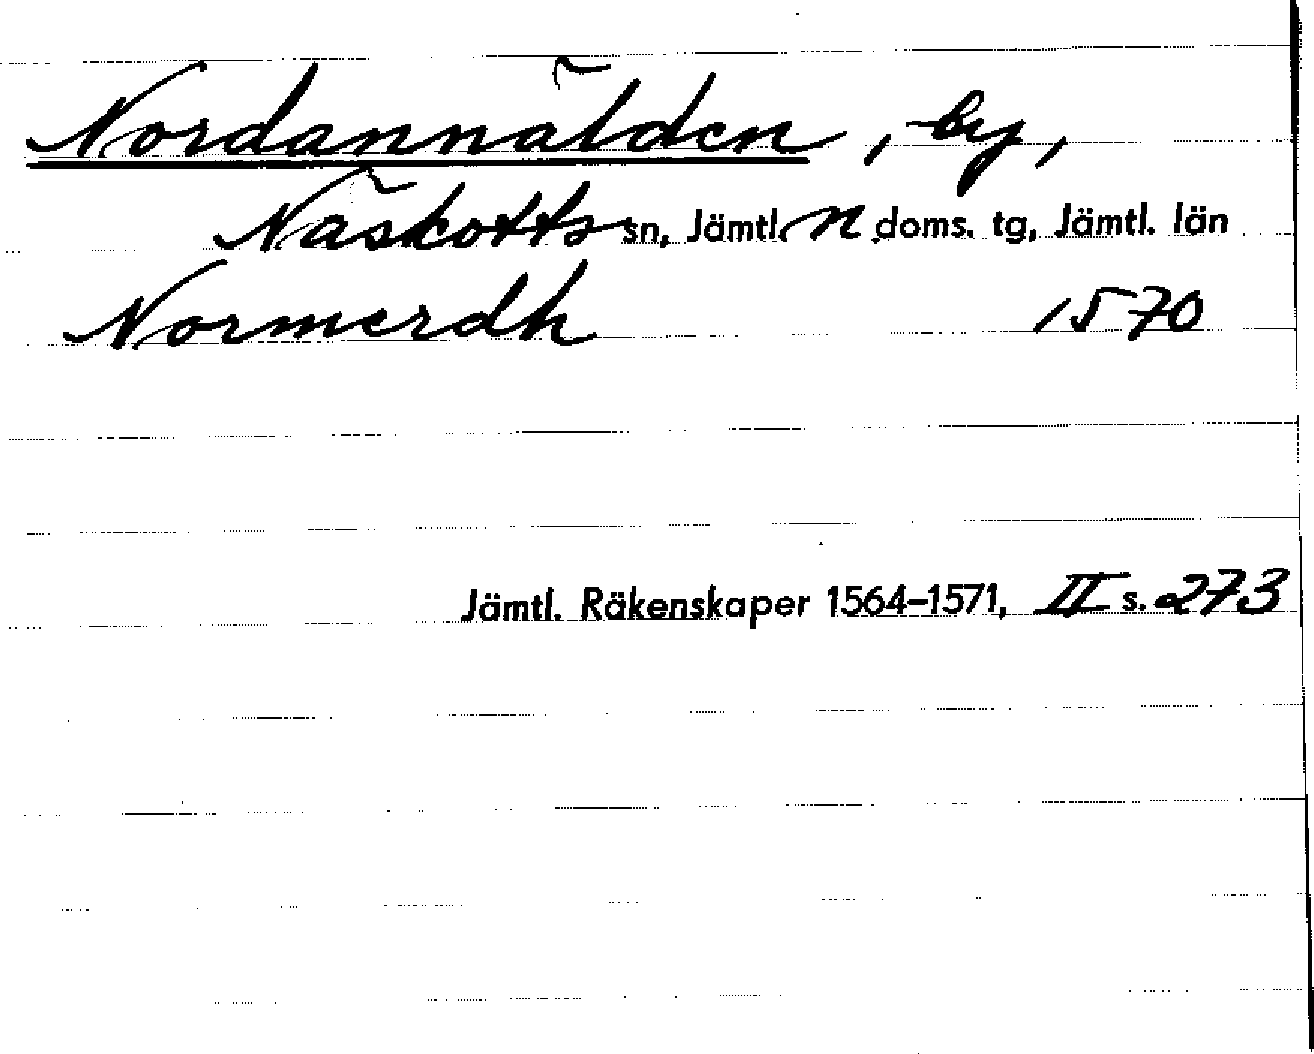 Nordannälden, by,
Näskotts sn, Jämtl. n doms. tg, Jämtl. län
Normerdh 1570
Jämtl. Räkenskaper 1564-1571, II s. 273